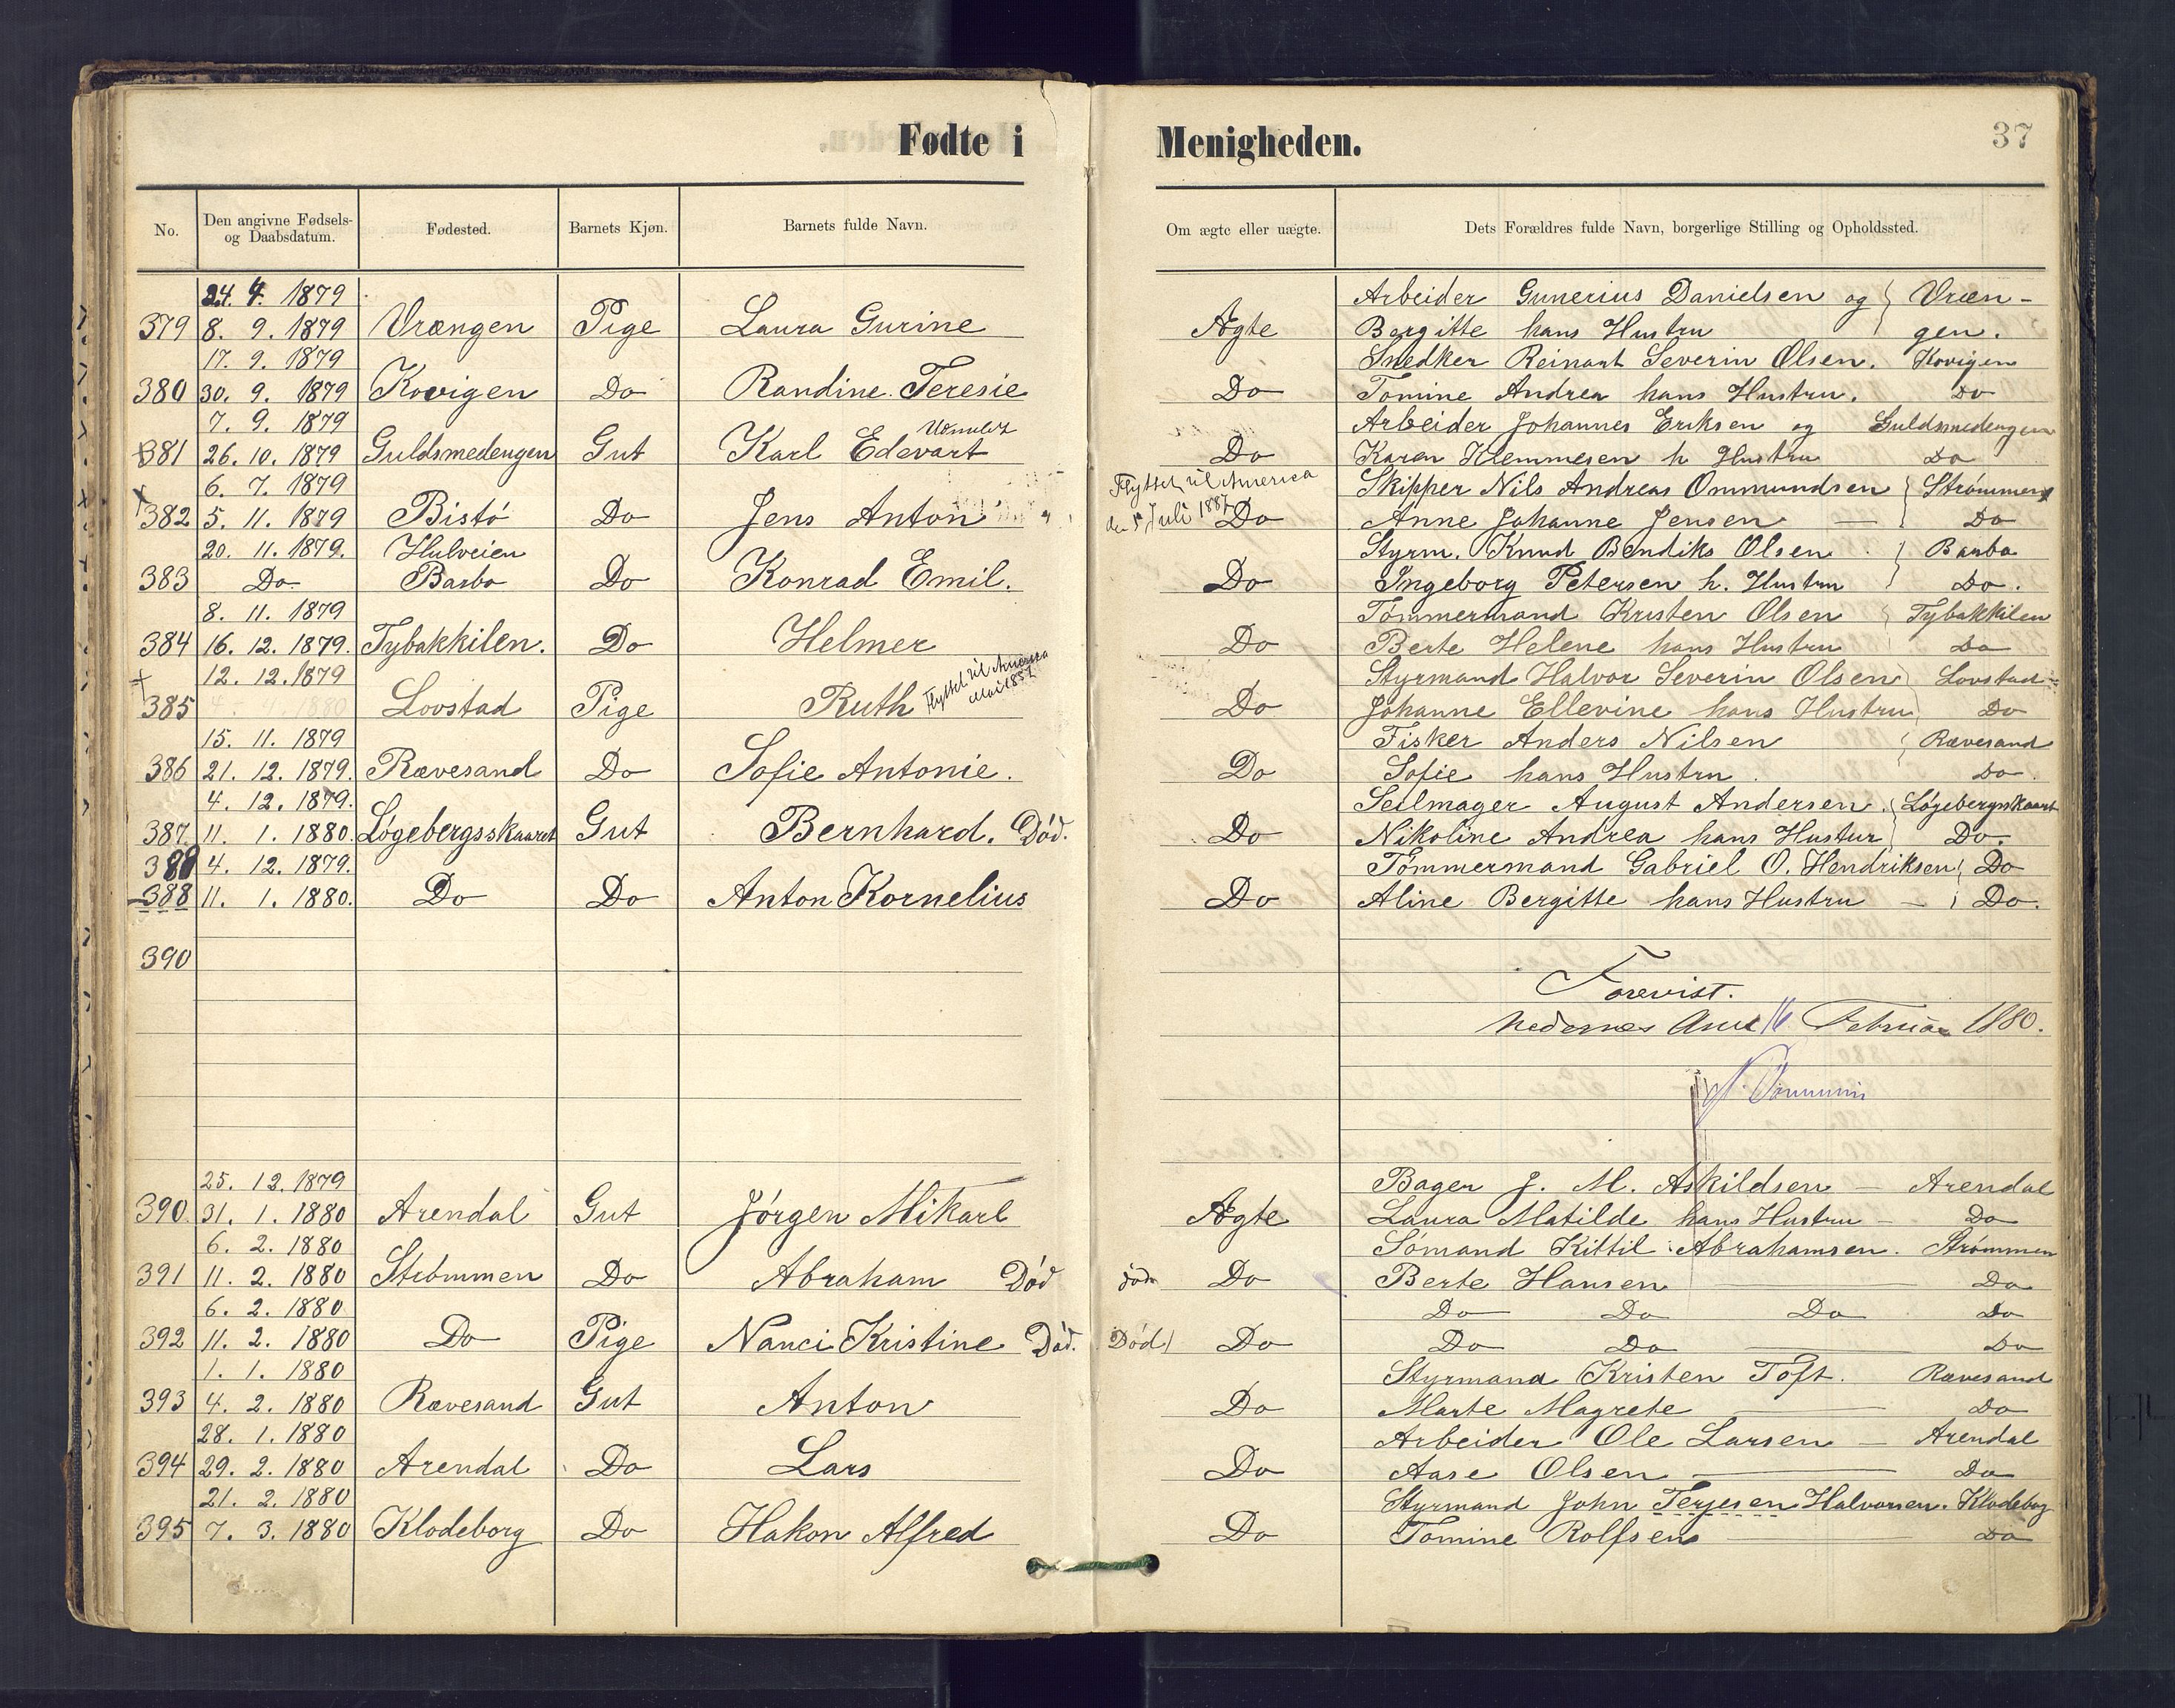 Fødte i Menigheden.
37
No. Den angivne Fødsels- og Daabsdatum. Fødested. Barnets Kjøn. Barnets fulde Navn. Om ægte eller uægte. Dets Forældres fulde Navn, borgerlige Stilling og Opholdssted.
24. 4. 1879 Arbeider Gunerius Danielsen og Vræn-
379 8. 9. 1879 Vrængen Pige Laura Gurine Ægte Bergitte hans Hustru gen.
17. 9. 1879 Snedker Reinart Severin Olsen. Kovigen
380 30. 9. 1879 Kovigen Do Randine Teresie Do Tomine Andrea hans Hustru. Do
7. 9. 1879 Udmeldt Arbeider Johannes Eriksen og Guldsmedengen
381 26. 10. 1879 Guldsmedengen Gut Karl Edevart Do Karen Klemmesen h Hustru Do
6. 7. 1879 Flyttet til America Skipper Nils Andreas Ommundsen Strømmen
382 5. 11. 1879 Bistö Do Jens Anton den 5 Juli 1887 Do Anne Johanne Jensen — Do
20. 11. 1879. Hulveien Styrm. Knud Bendiks Olsen Barbo
383 Do Barbo Do Konrad Emil. Do Ingeborg Petersen h. Hustru Do.
8. 11. 1879 Tømmermand Kristen Olsen Tybakkilen
384 16. 12. 1879. Tybakkilen. Do Helmer Do Berte Helene hans Hustru Do
12. 12. 1879 Flyttet til America Styrmand Halvor Severin Olsen Lovstad
385 4. 4. 1880 Lovstad Pige Ruth Mai 1887 Do Johanne Ellevine hans Hustru Do
15. 11. 1879 Fisker Anders Nilsen Rævesand
386 21. 12. 1879. Rævesand Do Sofie Antonie. Do Sofie hans Hustru Do.
4. 12. 1879. Seilmager August Andersen. Løgebergsskaaret
387. 11. 1. 1880. Løgebergsskaaret Gut Bernhard. Död. Do Nikoline Andrea hans Hustur Do.
388 4. 12. 1879. Tømmermand Gabriel O. Hendriksen Do
388 11. 1. 1880. Do Do Anton Kornelius Do Aline Bergitte hans Hustru — Do.
390
Forevist.
Nedernes Amt 16 Februar 1880.
25. 12. 1879 Bager J. M. Askildsen — Arendal
390. 31. 1. 1880 Arendal Gut Jørgen Mikael Ægte Laura Matilde hans Hustru — Do
6. 2. 1880 Sömand Kittil Abrahamsen. Strømmen
391 11. 2. 1880 Strømmen Do Abraham Död Do Berte Hansen Do
6. 2. 1880 Do Do Do Do
392 11. 2. 1880 Do Pige Nanci Kristine Död. Död Do Do Do Do
1. 1. 1880 Styrmand Kristen Toft. Rævesand
393 4. 2. 1880 Rævesand Gut Anton Do Marte Magrete Do
28. 1. 1880 Arbeider Ole Larsen — Arendal
394 29. 2. 1880 Arendal Do Lars Do Aase Olsen Do
21. 2. 1880 Styrmand John Terjesen Halvorsen. Klodeborg
395 7. 3. 1880 Klodeborg Do Hakon Alfred Do Tomine Rolfsens Do